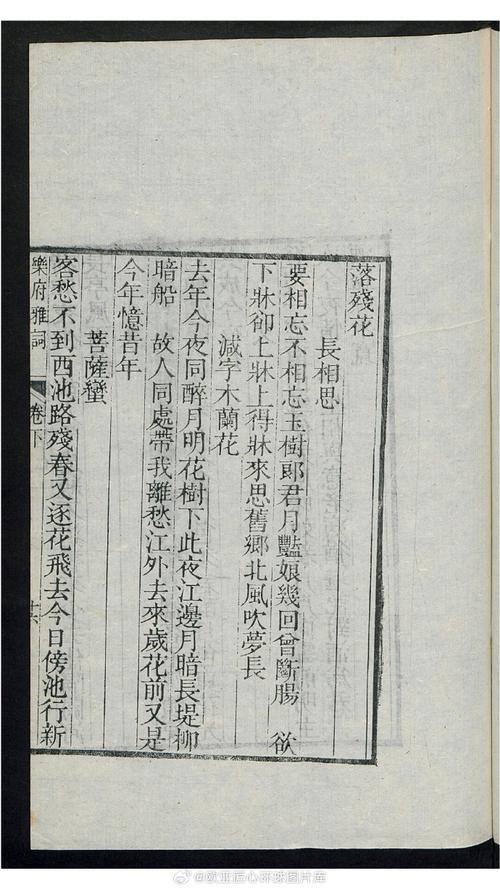 落殘花
長相思
要相忘不相忘玉樹郎君月豔娘幾回曾斷腸　欲
下牀卻上牀上得牀來思舊鄉北風吹夢長
減字木蘭花
去年今夜同醉月明花樹下此夜江邊月暗長堤柳
暗船　故人同處帶我離愁江外去來歲花前又是
今年憶昔年
菩薩蠻
客愁不到西池路殘春又逐花飛去今日傍池行新
樂府雅詞
卷下